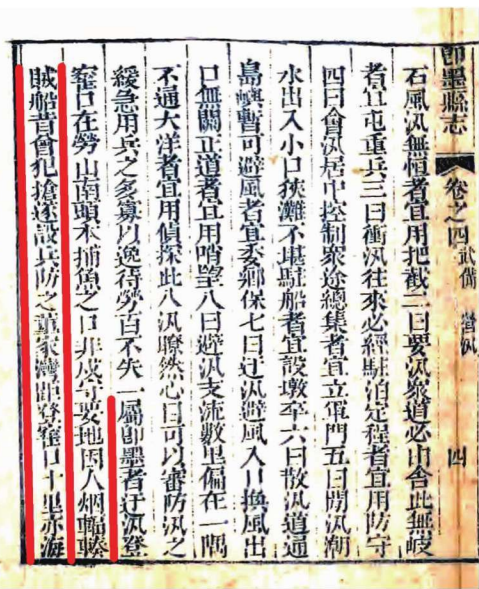 即墨縣志 卷之四 武備 營汛 四
石風汛無恒者宜用把截二曰要汛衆道必由舍此無岐
者宜屯重兵三曰衝汛往來必經駐泊定程者宜用防守
四曰會汛居中控制衆途總集者宜立軍門五曰閒汛潮
水出入小口狹灘不堪駐船者宜設墩卒六曰散汛道通
島嶼暫可避風者宜委鄉保七曰迂汛避風入口換風出
口無關正道者宜用哨望八曰避汛支流數里偏在一隅
不通大洋者宜用偵探此八汛瞭然心目可以審防汛之
緩急用兵之多寡以逸待勞百不失一屬即墨者迂汛登
窰口在勞山南頭本捕魚之口非戍守要地因人烟輻輳
賊船昔曾犯搶遂設兵防之董家灣距登窰口十里亦海